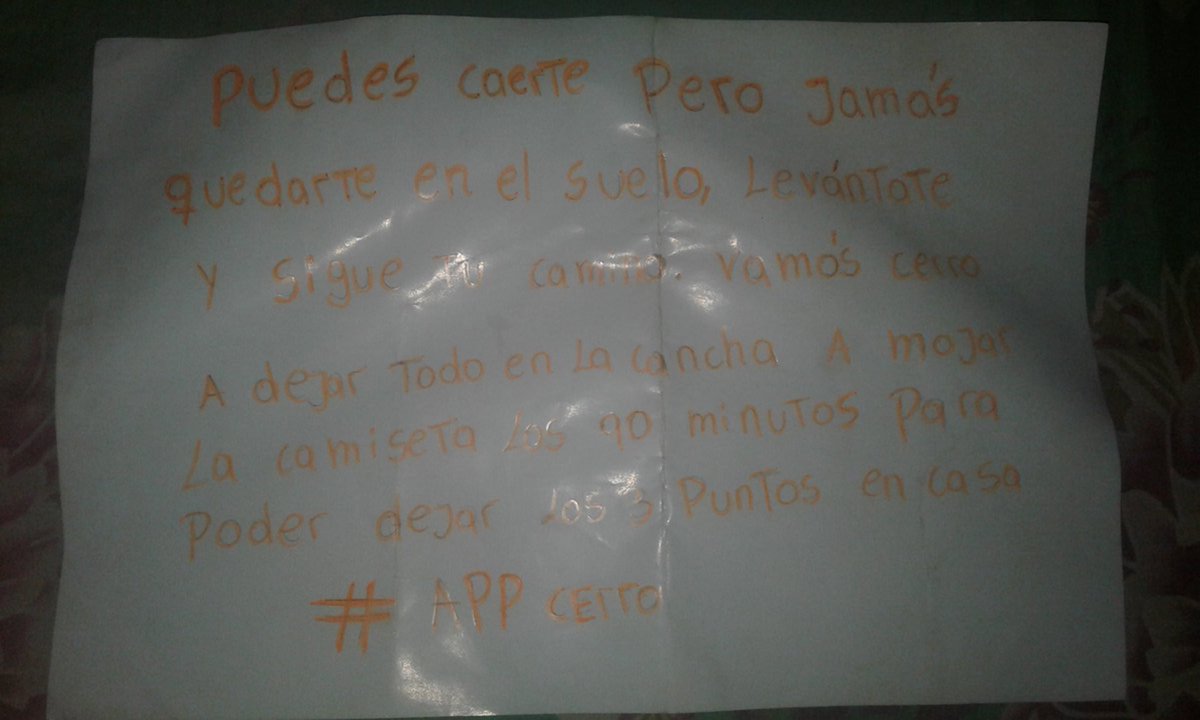 Puedes caerte Pero Jamás
quedarte en el suelo, Levántate
Y sigue Tu camino. Vamós cerro
A dejar Todo en La cancha A mojar
La camiseta Los 90 minutos Para
Poder dejar Los 3 Puntos en casa
# APP CERRO